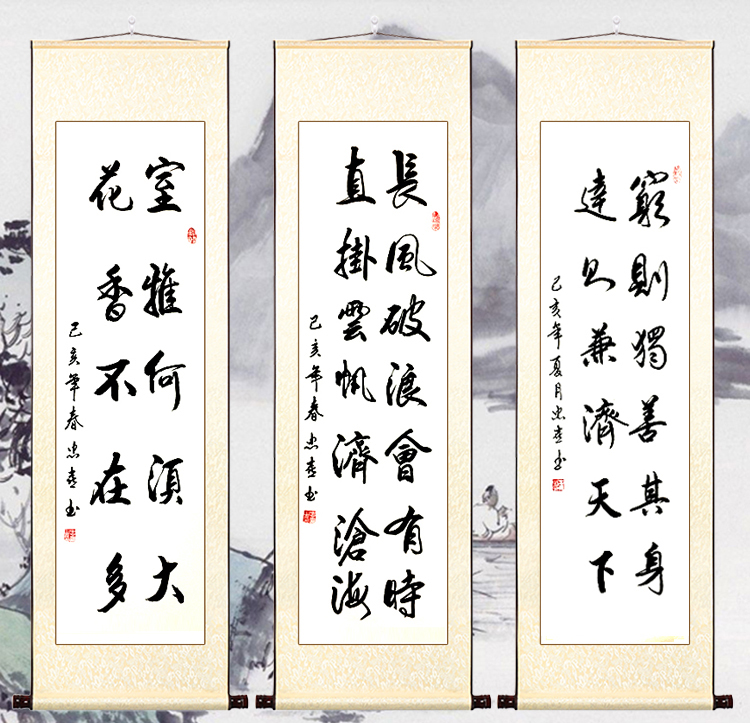 室雅何須大
花香不在多
己亥年春忠书
長風破浪會有時
直掛雲帆濟滄海
己亥年春忠书
窮則獨善其身
達则兼濟天下
己亥年夏月忠书